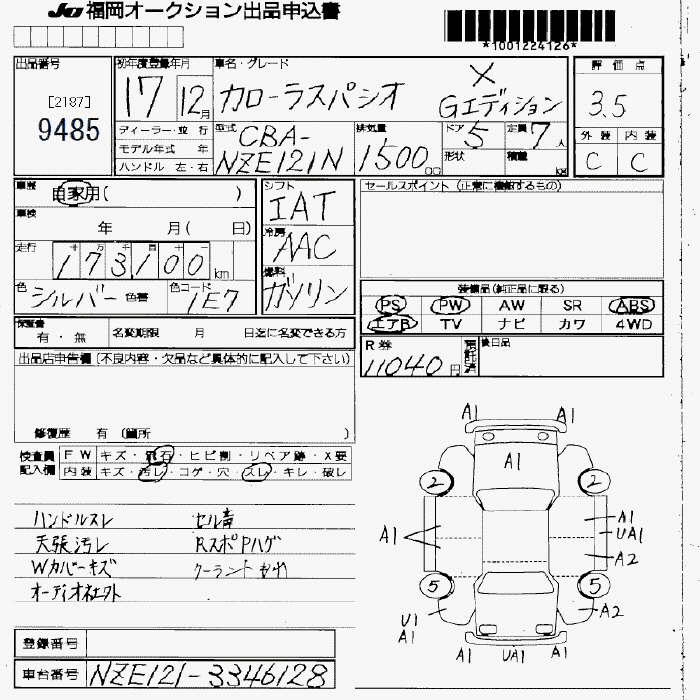 JU 福岡オークション出品申込書
*1001224126*
出品番号
[2187]
9485
初年度登録年月
17 12月
車名・グレード
カローラスパシオ X Gエディション
評価点
3.5
外装 内装
C C
ディーラー・並行
モデル年式 年
ハンドル 左・右
型式
CBA-
NZE121N
排気量
1500 cc
ドア 5
形状
定員 7 人
積載 kg
車歴 自家用( )
車検 年 月( 日)
走行 十 万 千 百 十
173100 km
色 シルバー 色替
色コード 1E7
シフト
IAT
冷房
AAC
燃料
ガソリン
セールスポイント (正常に機能するもの)
装備品(純正品に限る)
PS PW AW SR ABS
エアB TV ナビ カワ 4WD
保証書
有・無
名変期限 月 日迄に名変できる方
R券
11040円
預託済
後日品
出品店申告欄(不良内容・欠品など具体的に記入して下さい)
修復歴 有 (箇所 )
検査員記入欄
FW キズ・飛石・ヒビ割・リペア跡・X要
内装 キズ・汚レ・コゲ・穴・スレ・キレ・破レ
ハンドルスレ セル音
天張汚レ RスポPハゲ
Wカバーキズ クーラントモレ
オーディオネエクト
A1 A1
A1
2 2
A1
A1
UA1
A2
5 5
U1
A1
A2
A1 UA1 A1
登録番号
車台番号 NZE121-3346128